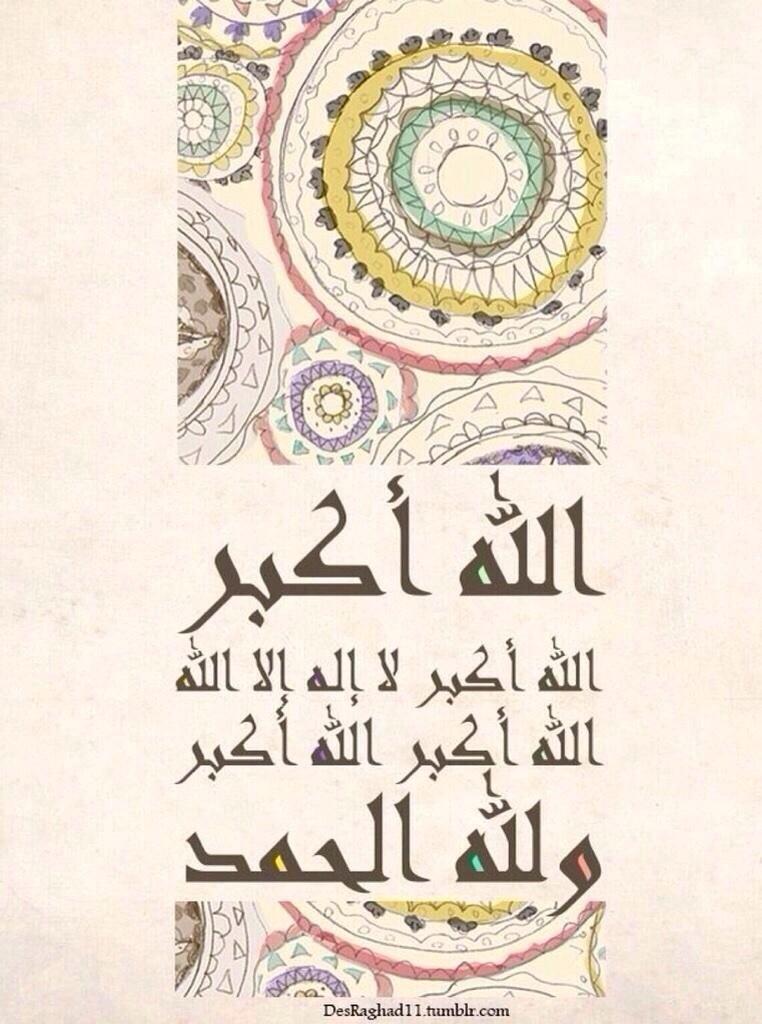 الله أكبر
الله أكبر لا إله إلا الله
الله أكبر الله أكبر
ولله الحمد
DesRaghad11.tumblr.com